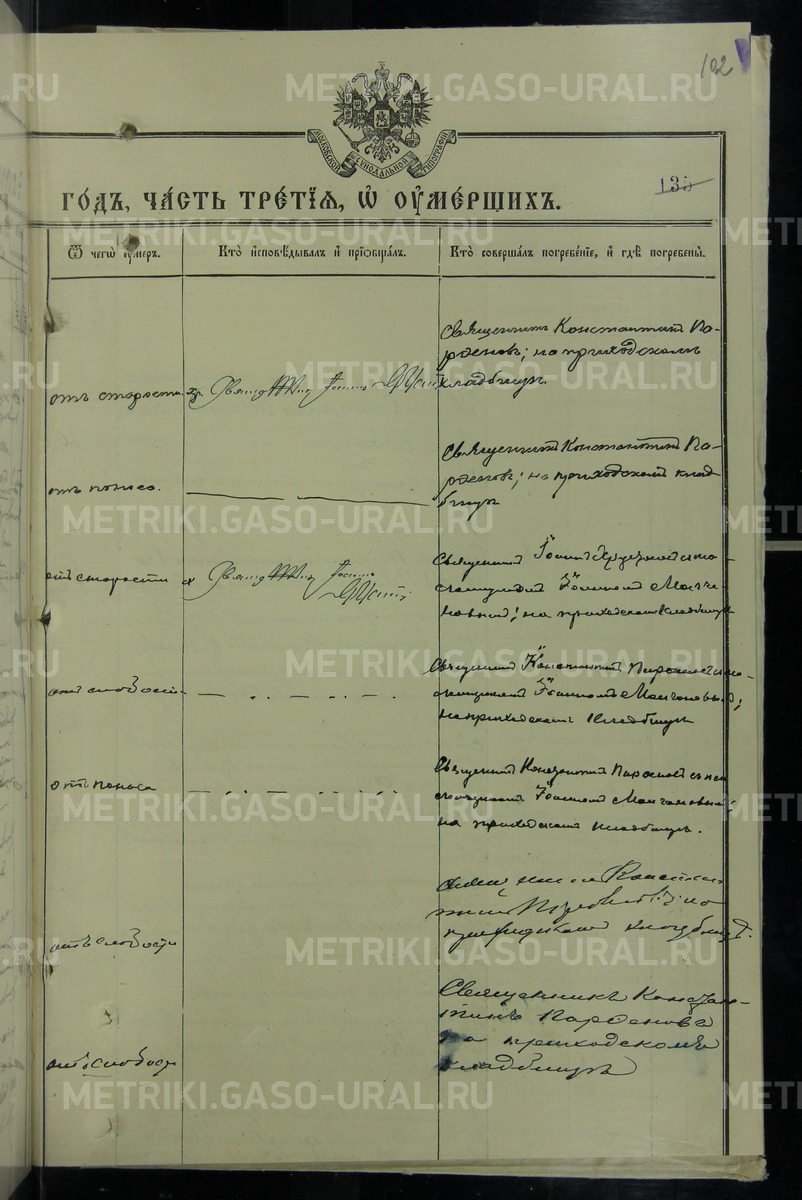 192
135
МОСКОВСКОЙ СѴНОДАЛЬНОЙ ТИПОГРАФІИ
ГОДЪ, ЧАСТЬ ТРЕТІЯ, Ѡ ОУМЕРШИХЪ.
Ѿ чегѡ оумеръ.
Кто исповѣдывалъ и пріобщалъ.
Кто совершалъ погребеніе, и гдѣ погребены.
отъ старости
Священникъ Константинъ Па-
рѳеновъ; на приходскомъ
кладбищѣ.
отъ поноса.
Священникъ Константинъ Па-
рѳеновъ; на приходскомъ клад-
бищѣ
отъ старости
Священникъ Іоаннъ
Іоанномъ Молча-
новымъ; на приходскомъ кладбищѣ
отъ слабости
Священникъ Константинъ Парѳеновъ
Іоанномъ Молчановымъ;
на приходскомъ кладбищѣ
отъ поноса
Священникъ Константинъ Парѳеновъ
Іоанномъ Молчановымъ;
на приходскомъ кладбищѣ.
отъ слабости
Констан-
тинъ Парѳеновъ на
приходскомъ кладбищѣ.
отъ слабости
Священникъ Констан-
тинъ Парѳеновъ
на приходскомъ
кладбищѣ
METRIKI.GASO-URAL.RU